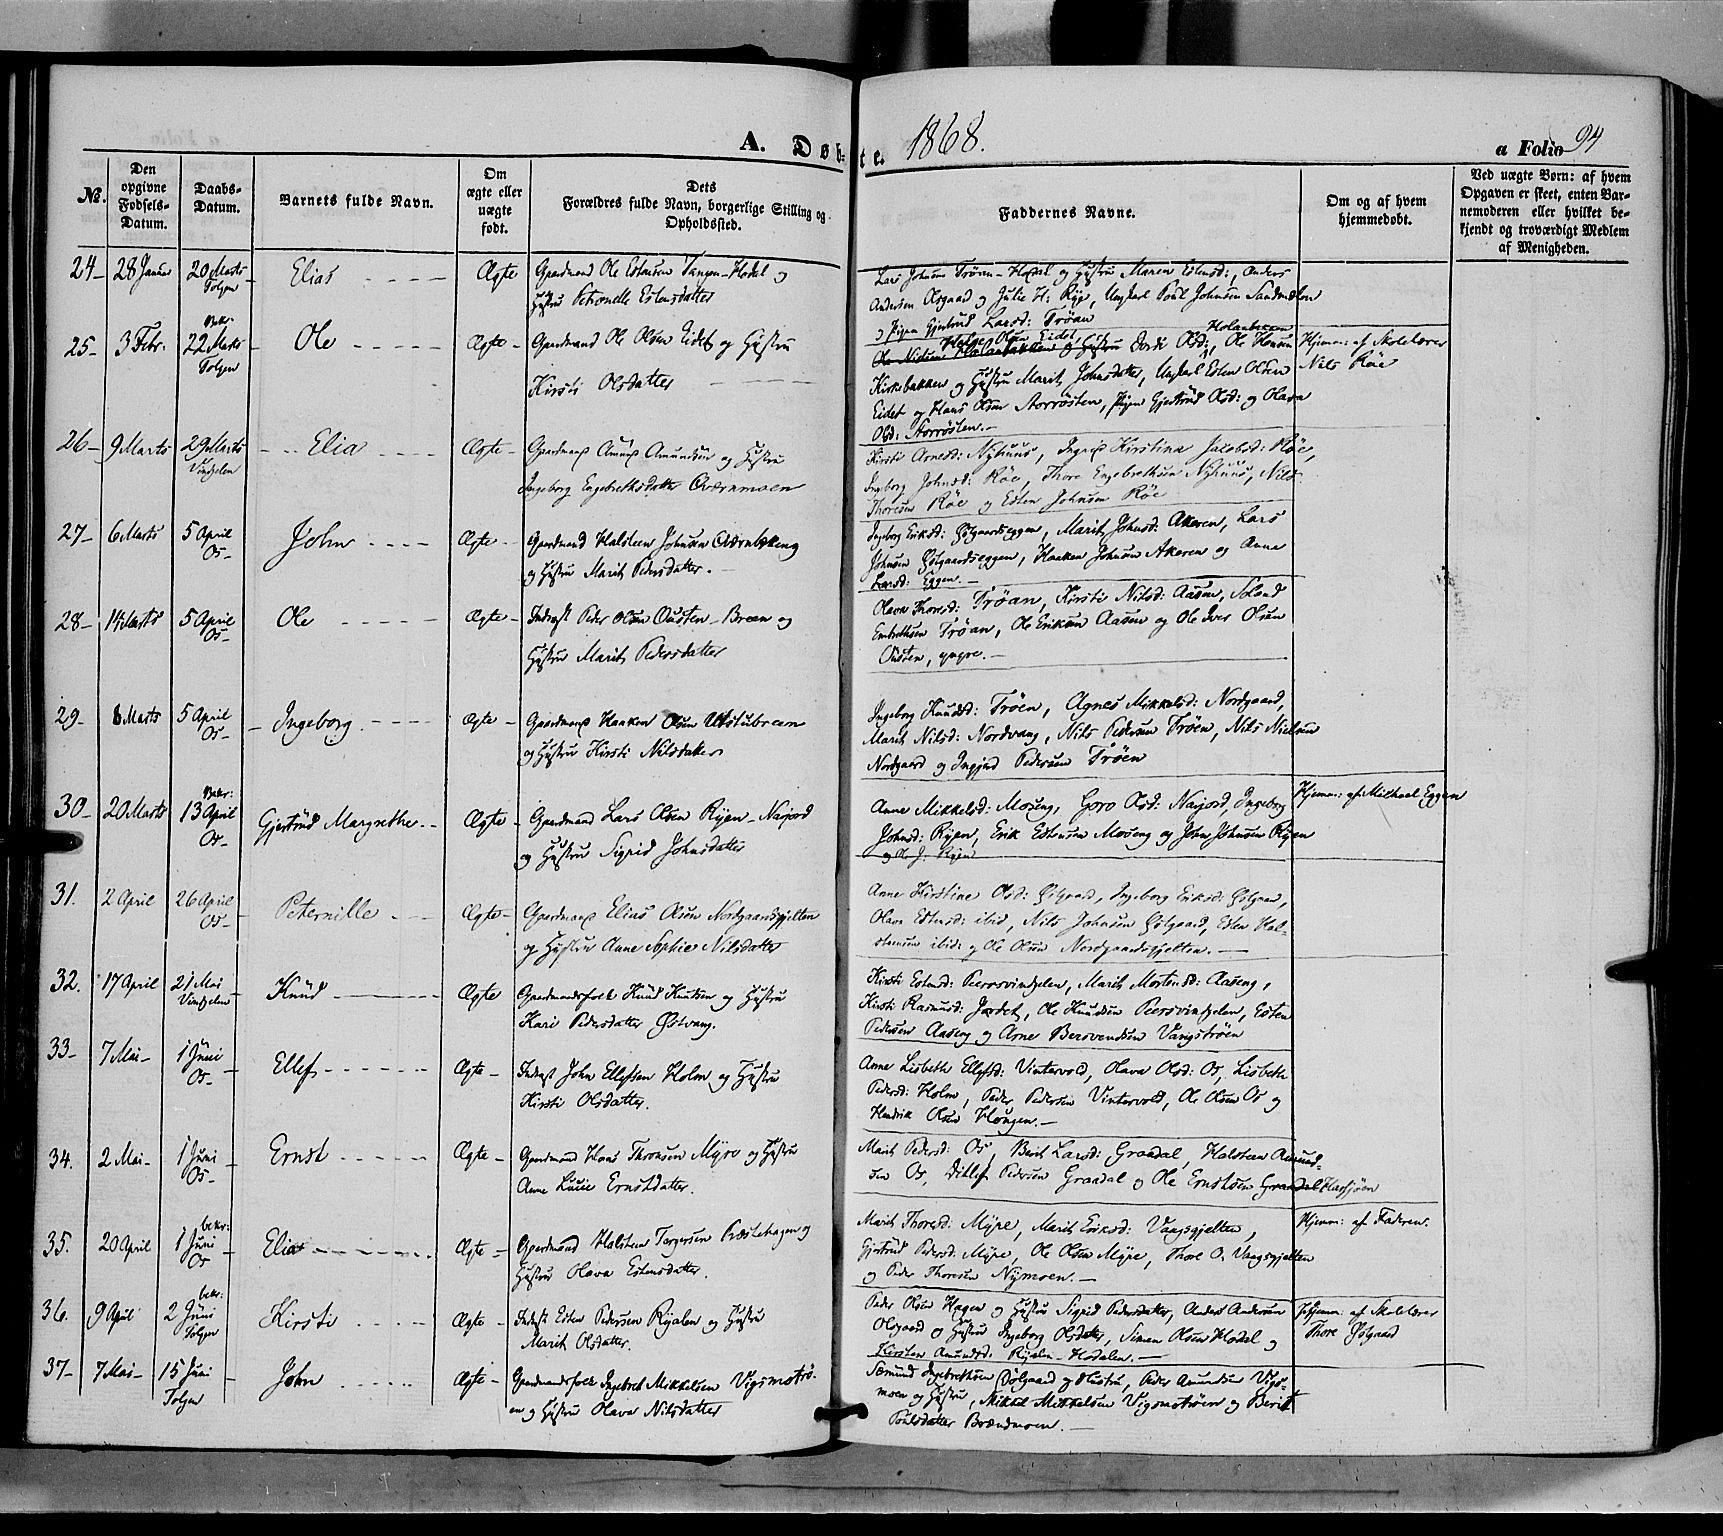 A. Døb-te. 1868. a Folio 94
№.
Den opgivne Fødsels-Datum.
Daabs-Datum.
Barnets fulde Navn.
Om ægte eller uægte født.
Dets Forældres fulde Navn, borgerlige Stilling og Opholdssted.
Faddernes Navne.
Om og af hvem hjemmedøbt.
Ved uægte Børn: af hvem Opgaven er skeet, enten Barnemoderen eller hvilket bekjendt og troværdigt Medlem af Menigheden.
24 - 28 Januar 20 Marts Tolgen - Elias Ægte Gaardmand Ole Estensen Tangen-Hodal og
Hustru Petronelle Estensdatter
Lars Johnsen Trøan-Hodal og Hustru Maren Estensd:, Anders
Andersen Olsgaard og Julie H: Rye, Ungkarl Poul Johnsen Sandmælen
og Pigen Gjertrud Larsd: Trøan
25 - 3 Febr. Bekr: 22 Marts Tolgen Ole Ægte - Gaardmand Ole Olsen Eidet og Hustru
Kirsti Olsdatter
Holanbreen
Kirkebakken og Hustru Marit Johnsdatter, Ungkarl Esten Olsen
Eidet og Hans Olsen Aorrøsten, Pigen Gjertrud Olsd: og Olava
Olsd: Aorrøsten. -
Hjemm: af Skolelærer
Nils Røe
26 - 9 Marts 29 Marts Vintjelen Elia Ægte - Gaardmand Amund Amundsen og Hustru
Ingeborg Engebrethsdatter Qværnmoen
Kirsti Arnesd: Nyhuus, Ingrid Kirstina Jacobsd: Røe,
Ingeborg Johnsd: Røe, Thore Engebrethsen Nyhuus, Nils
Thoresen Røe og Esten Johnsen Røe
27 - 6 Marts 5 April Os - John Ægte - Gaardmand Halsteen Johnsen Qværnbekeng
og Hustru Marit Pedersdatter. -
Ingeborg Eriksd: Sølgaardseggen, Marit Johnsd: Akeren, Lars
Johnsen Sølgaardseggen, Haaken Johnsen Akeren og Anne
Larsd: Eggen. -
28 - 14 Marts 5 April Os - Ole Ægte - Inderst Peder Olsen Ousten - Breen og
Hustru Marit Pedersdatter
Olava Thoresd: Trøan, Kirsti Nilsd: Aasen,
Embrethsen Trøan, Ole Eriksen Aasen og Ole Iver Olsen
Ousten, yngre. -
29 - 8 Marts 5 April Os - Ingeborg Ægte - Gaardmand Haaken Olsen Utstubreen
og Hustru Kirsti Nilsdatter
Ingeborg Knudsd: Trøen, Agnes Mikkelsd: Nordgaard,
Marit Nilsd: Nordvang, Nils Pedersen Trøen, Nils Nielsen
Nordgaard og Ingjerd Pedersen Trøen
30 - 20 Marts Bekr: 13 April Os - Gjertrud Margrethe Ægte - Gaardmand Lars Olsen Ryen - Narjord
og Hustru Sigrid Johnsdatter
Anne Mikkelsd: Moseng, Goro Olsd: Narjord, Ingeborg
Johnsd: Ryen, Erik Estensen Moseng og John Johnsen Ryen
og Ole J. Ryen
Hjemm: af Michael Eggen
31. 2 April 26 April Os - Peternille Ægte - Gaardmand Elias Olsen Nordgaardsgjelten
og Hustru Anne Sophie Nilsdatter
Anne Kirstine Olsd: Sølgaard, Ingeborg Eriksd: Sølgaard,
Olava Estensd: ibid, Nils Johnsen Sølgaard, Esten Hal-
stensen ibid: og Ole Olsen Nordgaardsgjelten. -
32. 17 April 21 Mai Vintjelen - Knud Ægte Gaardmandsfolk Knud Knutsen og Hustru
Kari Pedersdatter Østvang.
Kirsti Estensd: Peersvintjelen, Marit Mortensd: Aaseng,
Kirsti Rasmusd: Jordet, Ole Knudsen Peersvintjelen, Esten
Pedersen Aaseng og Arne Bersvendsen Vangstrøen
33 - 7 Mai - 1 Juni Os - Ellef Ægte - Inderst John Ellefsen Holm og Hustru
Kirsti Olsdatter.
Anne Lisbeth Ellefsd: Vintervold, Olava Olsd: Os, Lisbeth
Pedersd: Holm, Peder Pedersen Vintervold, Ole Olsen Os og
Hendrik Olsen Hougen. -
34. 2 Mai - 1 Juni Os - Ernst Ægte - Gaardmand Hans Thronsen Myro og Hustru
Anne Lucie Ernstdatter.
Marit Pedersd: Os, Berit Larsd: Graadal, Halsteen Amund-
sen Os, Ditlef Pedersen Graadal og Ole Ernstsen Graadal Harsjøen
35. 20 April bekr: 1 Juni Os - Elias Ægte - Gaardmand Halsteen Torgersen Præstehagen og
Hustru Olava Estensdatter.
Marit Thoresd: Myre, Marit Eriksd: Vangsgjelten,
Gjertrud Pedersd: Myre, Ole Olsen Myre, Thore O. Vangsgjelten
og Peder Thoresen Nymoen. -
Hjemm: af Faderen.
36. 9 April bekr: 2 Juni Tolgen Kirsti Ægte - Inderst Esten Pedersen Ryalen og Hustru
Marit Olsdatter.
Peder Olsen Hagen og Hustru Sigrid Pedersdatter, Anders Andersen
Olsgaard og Hustru Ingeborg Olsdatter, Simen Olsen Hodal og
Kirsten Amundsd: Ryalen - Hodalen. -
Hjemm: af Skolelærer
Thore Sølgaard
37 - 7 Mai - 15 Juni Tolgen - John Ægte - Gaardmandsfolk Ingebret Mikkelsen Vigsmostrø-
en og Hustru Olava Nilsdatter
Sæmund Ingebrethsen Sølgaard og Hustru, Peder Amundsen Vigs-
moen og Hustru, Mikkel Mikkelsen Vigsmostrøen og Berit
Poulsdatter Brændmoen. -